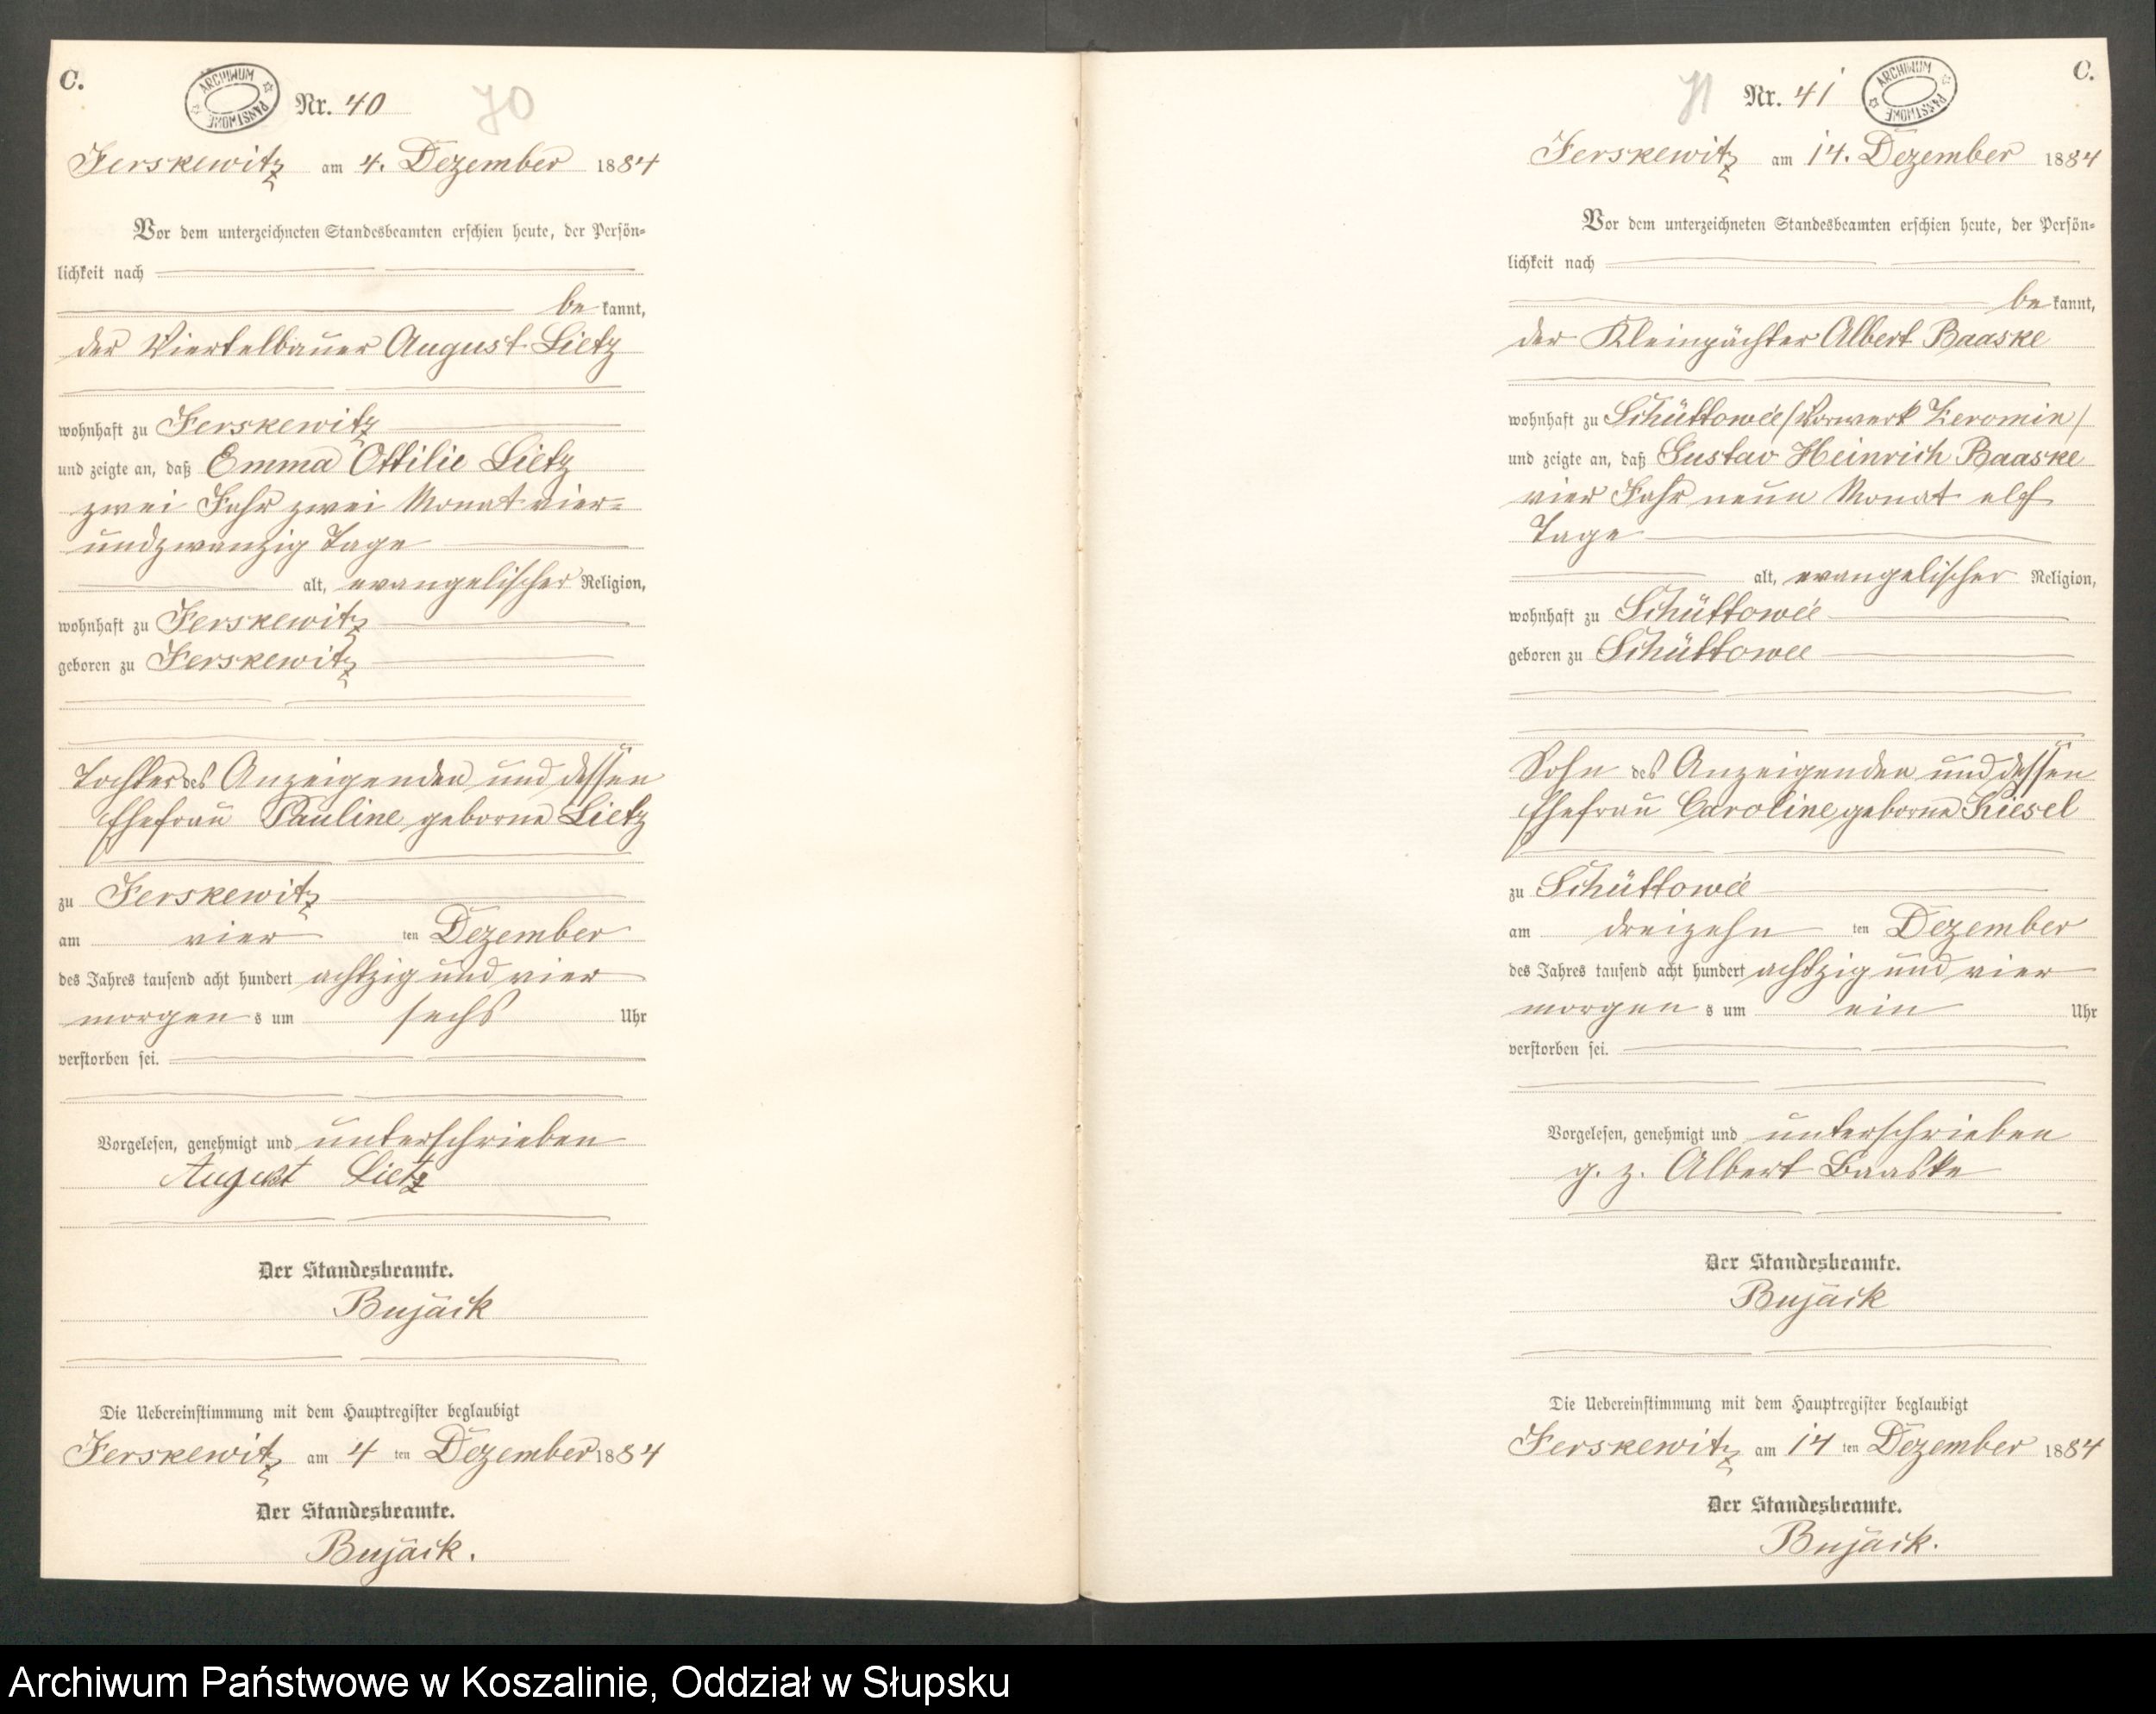 C.
ARCHIWUM PAŃSTWOWE
Nr. 40
70
Jerskewitz am 4. Dezember 1884
Vor dem unterzeichneten Standesbeamten erschien heute, der Persön=
lichkeit nach
be kannt,
der Viertelbauer August Lietz
wohnhaft zu Jerskewitz
und zeigte an, daß Emma Ottilie Lietz
zwei Jahr zwei Monat vier=
undzwanzig Tage
alt, evangelischer Religion,
wohnhaft zu Jerskewitz
geboren zu Jerskewitz
Tochter des Anzeigenden und dessen
Ehefrau Pauline geborne Lietz
zu Jerskewitz
am vier ten Dezember
des Jahres tausend acht hundert achtzig und vier
morgen s um sechs Uhr
verstorben sei.
Vorgelesen, genehmigt und unterschrieben
August Lietz
Der Standesbeamte.
Bujack
Die Uebereinstimmung mit dem Hauptregister beglaubigt
Jerskewitz am 4 ten Dezember 1884
Der Standesbeamte.
Bujack.
C.
71
Nr. 41
ARCHIWUM PAŃSTWOWE
Jerskewitz am 14. Dezember 1884
Vor dem unterzeichneten Standesbeamten erschien heute, der Persön=
lichkeit nach
be kannt,
der Kleinpächter Albert Baaske
wohnhaft zu Schüttowée /Vorwerk Zeromin/
und zeigte an, daß Gustav Heinrich Baaske
vier Jahr neun Monat elf
Tage
alt, evangelischer Religion,
wohnhaft zu Schüttowée
geboren zu Schüttowee
Sohn des Anzeigenden und dessen
Ehefrau Caroline geborne Kiesel
zu Schüttowée
am dreizehn ten Dezember
des Jahres tausend acht hundert achtzig und vier
morgen s um ein Uhr
verstorben sei.
Vorgelesen, genehmigt und unterschrieben
g. z. Albert Baaske
Der Standesbeamte.
Bujack
Die Uebereinstimmung mit dem Hauptregister beglaubigt
Jerskewitz am 14 ten Dezember 1884
Der Standesbeamte.
Bujack.
Archiwum Państwowe w Koszalinie, Oddział w Słupsku